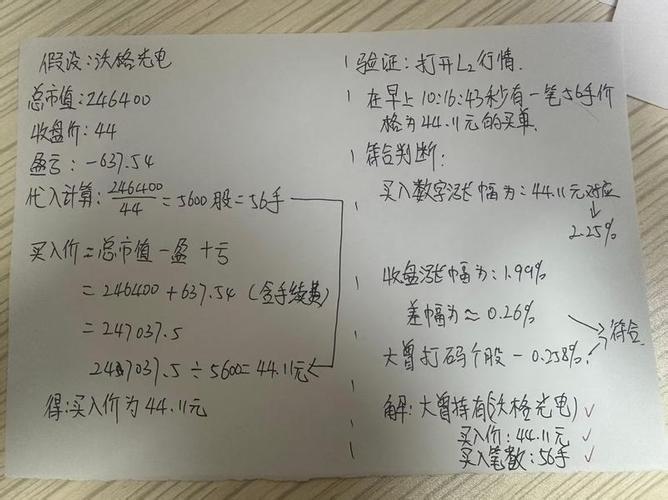 假设:沃格光电
总市值:246400
收盘价:44
盈亏:-637.54
代入计算:246400/44=5600股=56手
买入价=总市值-盈+亏
=246400+637.54(含手续费)
=247037.5
247037.5÷5600=44.11元
得:买入价为44.11元
验证:打开L2行情.
在早上10:16:43秒有一笔56手价
格为44.11元的买单.
符合判断:
买入数字涨幅为:44.11元对应
2.25%
收盘涨幅为:1.99%
差幅为≈0.26%
大曾打码个股-0.258%.
符合
解:大曾持有(沃格光电)✓
买入价:44.11元✓
买入笔数:56手✓